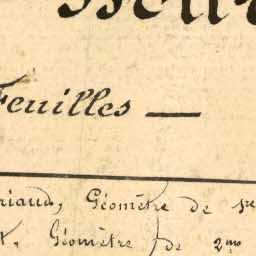 Feuilles —
riaud, Géomètre de 1re
t. Géomètre de 2me